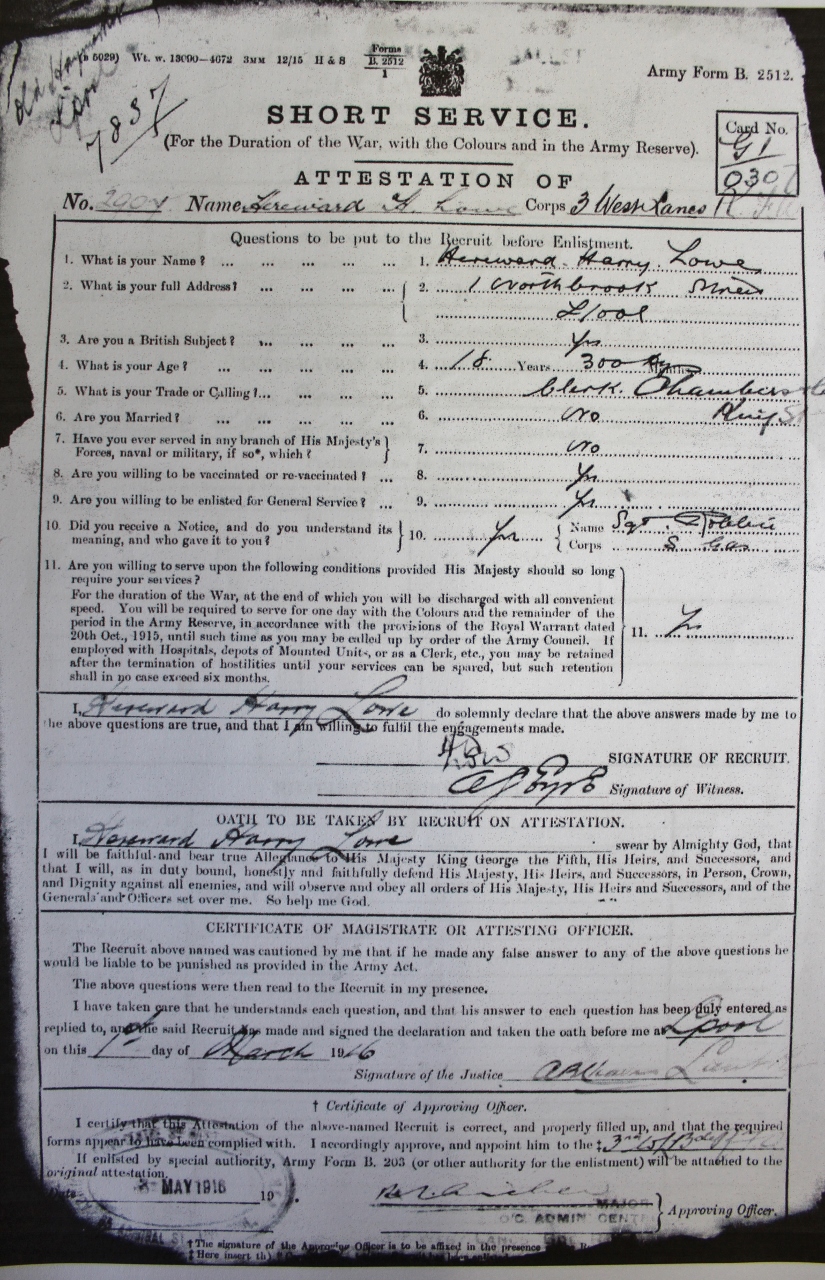 (B 5029) Wt. w. 13090—4672 3MM 12/15 H & S Forms B. 2512 1
Army Form B. 2512.
Old Haymarket
Lpool
7837
SHORT SERVICE.
(For the Duration of the War, with the Colours and in the Army Reserve).
Card No.
ATTESTATION OF
No. Name Hereward H. Lowe Corps 3 West Lancs
Questions to be put to the Recruit before Enlistment.
1. What is your Name? ... ... ... ... 1. Hereward Harry Lowe
2. What is your full Address? ... ... ... 2. 1 Northbrook Street
L'pool
3. Are you a British Subject? ... ... ... ... 3. Yes
4. What is your Age? ... ... ... ... 4. 18 Years 300 Months
5. What is your Trade or Calling?... ... ... ... 5. Clerk. Chambers
6. Are you Married? ... ... ... ... 6. No King St
7. Have you ever served in any branch of His Majesty's
Forces, naval or military, if so*, which? 7. No
8. Are you willing to be vaccinated or re-vaccinated? ... 8. Yes
9. Are you willing to be enlisted for General Service? ... 9. Yes
10. Did you receive a Notice, and do you understand its
meaning, and who gave it to you? 10. Yes Name Sgt.
Corps
11. Are you willing to serve upon the following conditions provided His Majesty should so long
require your services?
For the duration of the War, at the end of which you will be discharged with all convenient
speed. You will be required to serve for one day with the Colours and the remainder of the
period in the Army Reserve, in accordance with the provisions of the Royal Warrant dated
20th Oct., 1915, until such time as you may be called up by order of the Army Council. If
employed with Hospitals, depots of Mounted Units, or as a Clerk, etc., you may be retained
after the termination of hostilities until your services can be spared, but such retention
shall in no case exceed six months.
11. Yes
I, Hereward Harry Lowe do solemnly declare that the above answers made by me to
the above questions are true, and that I am willing to fulfil the engagements made.
SIGNATURE OF RECRUIT.
Signature of Witness.
OATH TO BE TAKEN BY RECRUIT ON ATTESTATION.
I, Hereward Harry Lowe swear by Almighty God, that
I will be faithful and bear true Allegiance to His Majesty King George the Fifth, His Heirs, and Successors, and
that I will, as in duty bound, honestly and faithfully defend His Majesty, His Heirs, and Successors, in Person, Crown,
and Dignity against all enemies, and will observe and obey all orders of His Majesty, His Heirs and Successors, and of the
Generals and Officers set over me. So help me God.
CERTIFICATE OF MAGISTRATE OR ATTESTING OFFICER.
The Recruit above named was cautioned by me that if he made any false answer to any of the above questions he
would be liable to be punished as provided in the Army Act.
The above questions were then read to the Recruit in my presence.
I have taken care that he understands each question, and that his answer to each question has been duly entered as
replied to, and the said Recruit has made and signed the declaration and taken the oath before me at Lpool
on this 1st day of March 1916
Signature of the Justice
† Certificate of Approving Officer.
I certify that this Attestation of the above-named Recruit is correct, and properly filled up, and that the required
forms appear to have been complied with. I accordingly approve, and appoint him to the ‡
If enlisted by special authority, Army Form B. 203 (or other authority for the enlistment) will be attached to the
original attestation.
Date MAY 1916 19 .
MAJOR
O/C ADMIN CENTRE
Approving Officer.
† The signature of the Approving Officer is to be affixed in the presence
‡ Here insert th